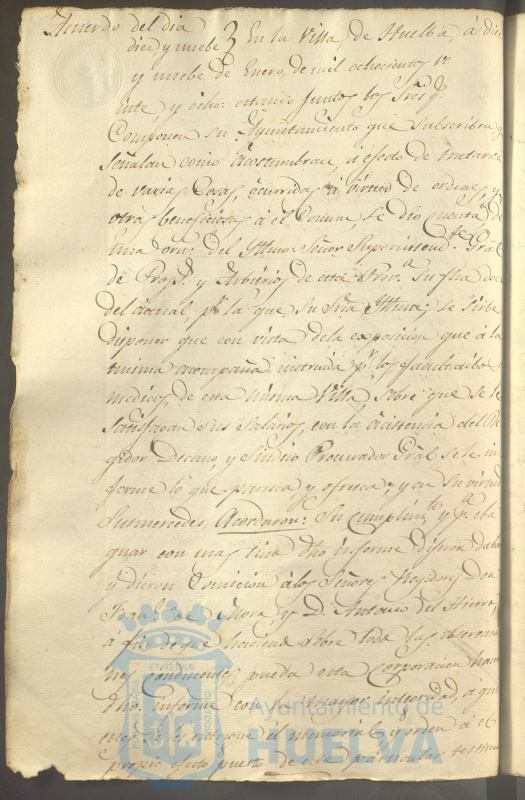 Acuerdo del dia
diez y nuebe } En la Villa, de Huelba, á diez
y nuebe de Enero, de mil ochocientos ve
inte, y ocho: estando Juntos los Sres q.
Componen su Ayuntamiento que Subscriben, y
Señalan como acostumbran, a efecto de tratar
de varias Cosas, ocurridas á virtud de ordenes, y
otras beneficiosas á el Comun, se dio cuenta de
una orn: del Ylmo: Señor Superintend.te Gral
de Prop.s y Arbitrios de esta Prov.a Su fha doce
del actual pr la que Su Sria Yltma: se Sirbe
disponer que con vista dela exposicion que á la
misma acompaña instruida pr los facultatibos
medicos, de esta misma Villa, Sobre que se le
Satisfagan sus Salarios, con la acistencia del Re
gidor Decano, y Sindico Procurador Gral Se le in
forme lo que paresca y ofresca, y en su virtud
Susmercedes, Acordaron: Su Cumplim.to y p.a eba
quar con mas tino dho informe dijeron daban
y dieron Comicion álos Señores Regidores Don
Fran.co de Mora, y D. Antonio del Hierro,
á fin de que haciendo sobre todo las observacio
nes conducentes pueda esta Corporacion hacer
dho. informe con la mayor integridad, á que
se le entregue el memorial y orden á el
propio efecto puesto de este particular testimo
Ayuntamiento de
HUELVA